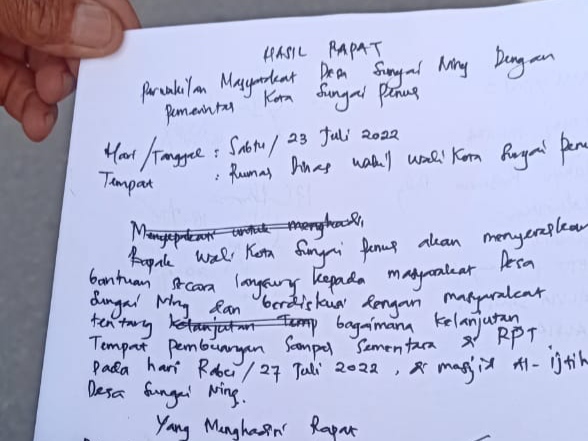 HASIL RAPAT
Perwakilan Masyarakat Desa Sungai Ning Dengan
Pemerintah Kota Sungai Penuh
Hari/Tanggal : Sabtu/ 23 Juli 2022
Tempat : Rumas Dinas wakil wali Kota Sungai Penu
Menyepakati untuk menghasi
Bapak Wali Kota Sungai Penuh akan menyerahkan
bantuan secara langsung kepada masyarakat Desa
Sungai Ning dan berdiskusi dengan masyarakat
tentang kelanjutan Temp bagaimana kelanjutan
Tempat Pembuangan Sampah Sementara di RPT
Pada hari Rabu/27 Juli 2022, di masjid Al-ijtih
Desa Sungai Ning.
Yang Menghadiri Rapat